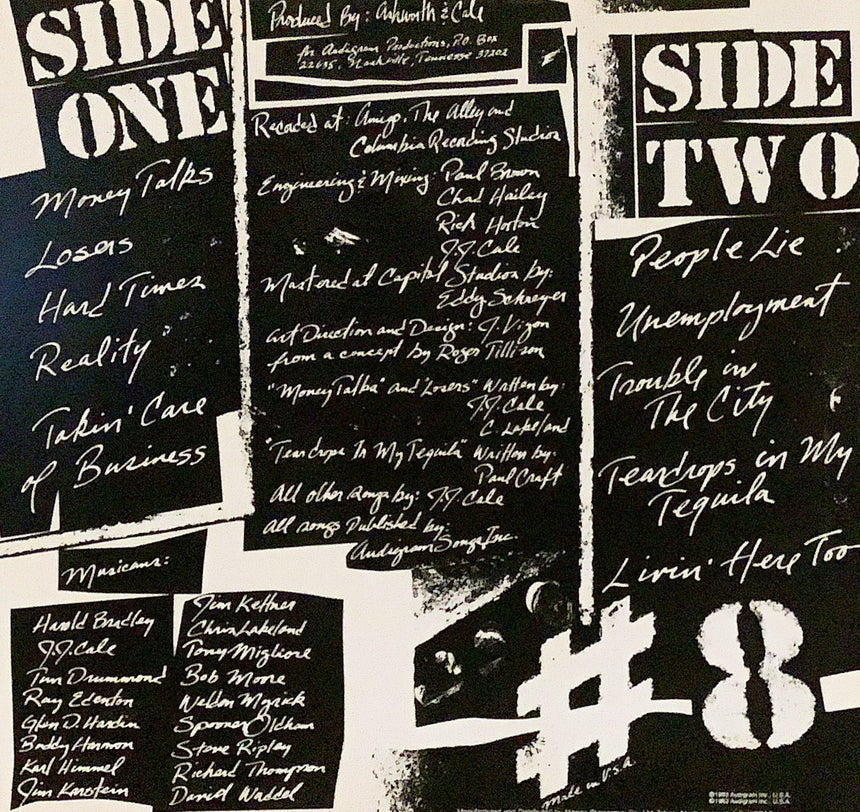 SIDE
ONE
Money Talks
Losers
Hard Times
Reality
Takin' Care
of Business
Produced By: Ashworth & Cale
for Audigram Productions, P.O. Box
22635, Nashville, Tennessee 37202
Recorded at: Amigo, The Alley and
Columbia Recording Studios
Engineering & Mixing: Paul Brown
Chad Hailey
Rick Horton
J.J. Cale
Mastered at Capitol Studios by:
Eddy Schreyer
Art Direction and Design: J. Vizon
from a concept by Roger Tillison
"Money Talks" and Losers" Written by:
J.J. Cale
C. Lakeland
"Teardrops In My Tequila" Written by:
Paul Craft
All other songs by: J.J. Cale
All songs Published by:
Audigram Songs, Inc.
SIDE
TWO
People Lie
Unemployment
Trouble in
The City
Teardrops in My
Tequila
Livin' Here Too
Musicans:
Harold Bradley
J.J. Cale
Tim Drummond
Ray Edenton
Glen D. Hardin
Buddy Harmon
Karl Himmel
Jim Karstein
Jim Keltner
Chris Lakeland
Tony Migliore
Bob Moore
Weldon Myrick
Spooner Oldham
Steve Ripley
Richard Thompson
David Waddel
#8
made in U.S.A.
©1983 Audigram Inc., U.S.A.
1983 Audigram Inc., U.S.A.